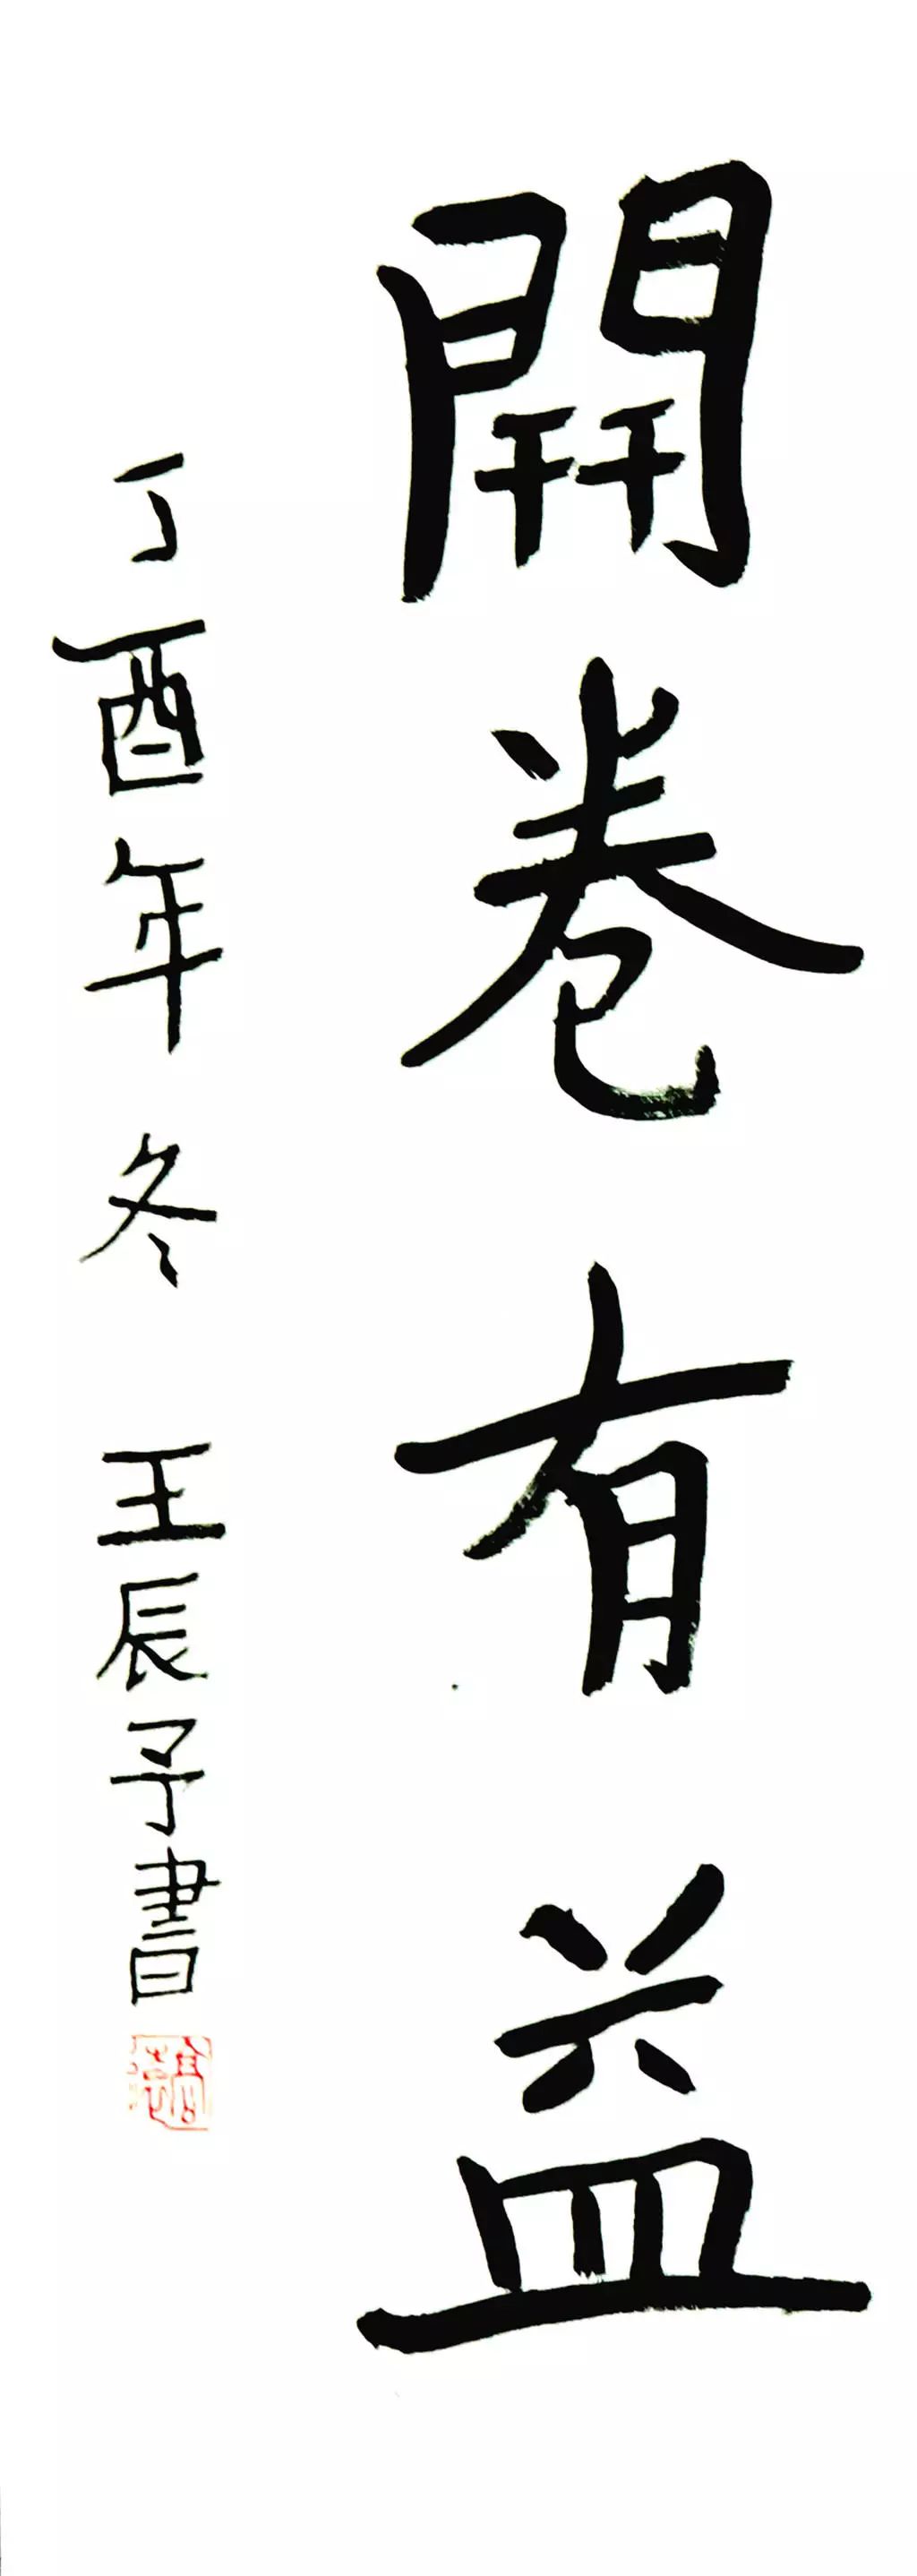 開卷有益
丁酉年冬 王辰予書